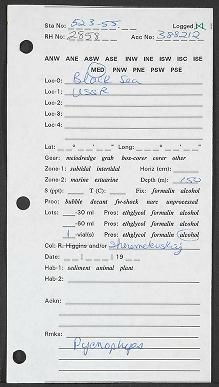 Sta No: 523-55 Logged
RH No: 2858 Acc No: 388212
ANW ANE ASW ASE INW INE ISW ISC ISE
MED PNW PNE PSW PSE
Loc-0: Black Sea
Loc-1: USSR
Loc-2:
Loc-3:
Loc-4:
Lat: ° ' " Long: ° ' "
Gear: meiodredge grab box-corer corer other
Zone-1: subtidal intertidal Horiz (cm):
Zone-2: marine estuarine Depth (m): 150
S (ppt): T (C): Fix: formalin alcohol
Proc: bubble decant fw-shock narc unprocessed
Lots: -30 ml Pres: ethglycol formalin alcohol
-60 ml Pres: ethglycol formalin alcohol
1 vial(s) Pres: ethglycol formalin alcohol
Col: R. Higgins and/or
Date: 19
Hab-1: sediment animal plant
Hab-2:
Ackn:
Rmks:
Pycnophyes